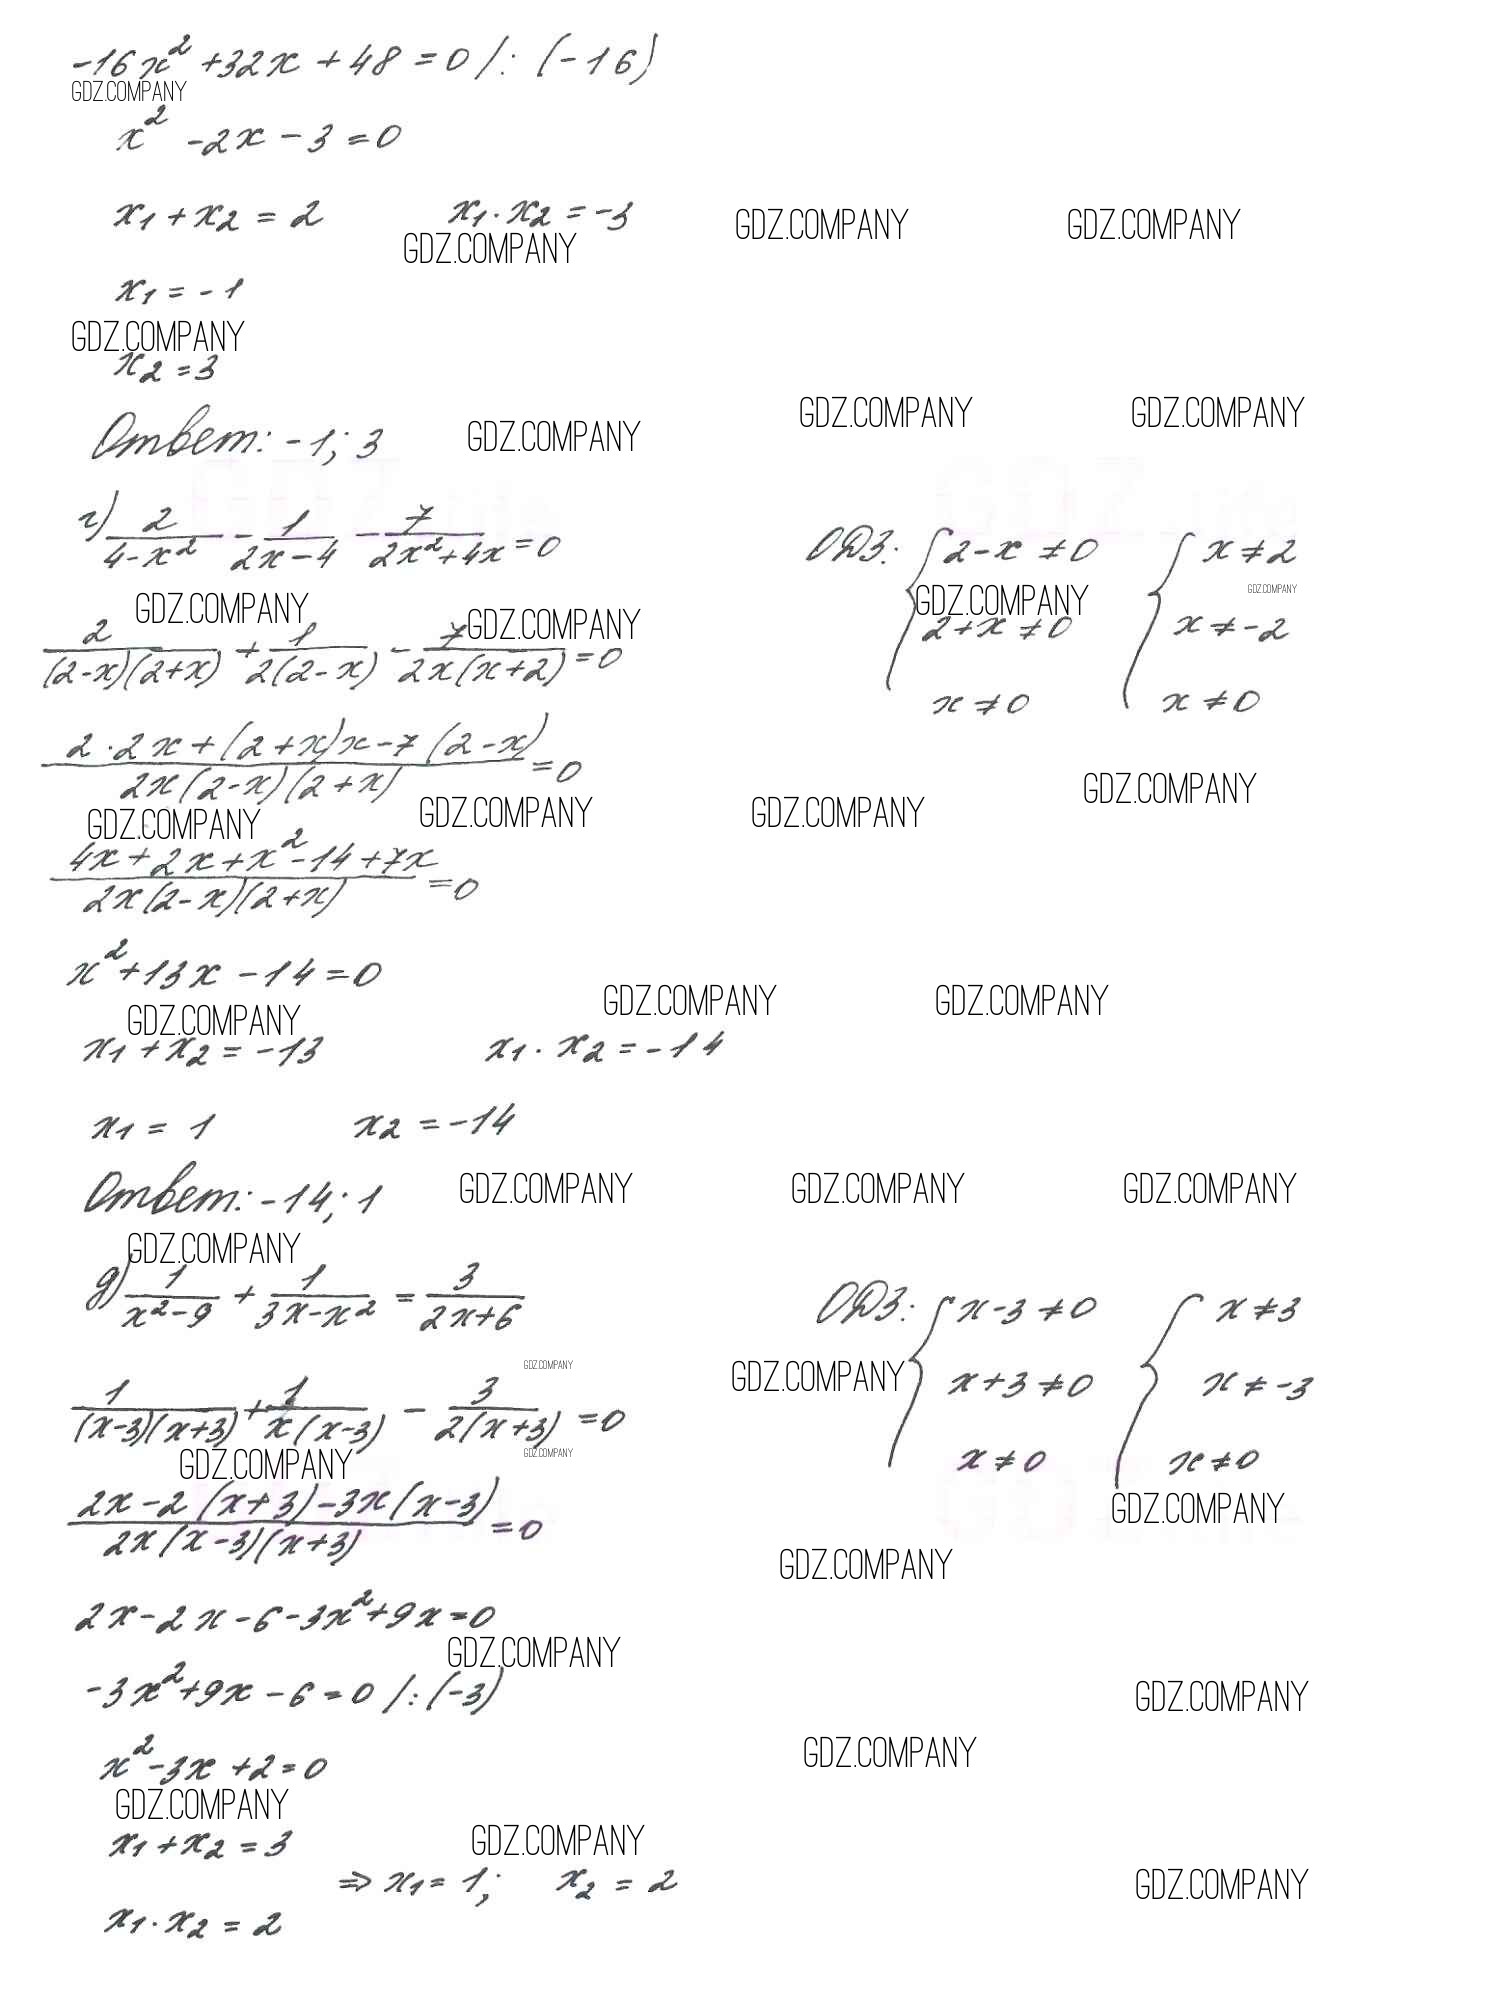 -16x² +32x + 48 = 0 /: (-16)
GDZ.COMPANY
x² -2x - 3 = 0
x₁ + x₂ = 2    x₁ · x₂ = -3
GDZ.COMPANY GDZ.COMPANY GDZ.COMPANY
x₁ = -1
GDZ.COMPANY
x₂ = 3
GDZ.COMPANY GDZ.COMPANY
Ответ: -1; 3 GDZ.COMPANY
г) 2/(4-x²) - 1/(2x-4) - 7/(2x²+4x) = 0    ОДЗ: { 2-x ≠ 0    { x ≠ 2
GDZ.COMPANY GDZ.COMPANY GDZ.COMPANY GDZ.COMPANY
2+x ≠ 0    x ≠ -2
2/((2-x)(2+x)) + 1/(2(2-x)) - 7/(2x(x+2)) = 0
x ≠ 0    x ≠ 0
(2·2x + (2+x)x - 7(2-x))/(2x(2-x)(2+x)) = 0
GDZ.COMPANY GDZ.COMPANY GDZ.COMPANY GDZ.COMPANY
(4x + 2x + x² - 14 + 7x)/(2x(2-x)(2+x)) = 0
x² + 13x - 14 = 0
GDZ.COMPANY GDZ.COMPANY GDZ.COMPANY
x₁ + x₂ = -13    x₁ · x₂ = -14
x₁ = 1    x₂ = -14
Ответ: -14; 1 GDZ.COMPANY GDZ.COMPANY GDZ.COMPANY
GDZ.COMPANY
д) 1/(x²-9) + 1/(3x-x²) = 3/(2x+6)    ОДЗ: { x-3 ≠ 0    { x ≠ 3
GDZ.COMPANY GDZ.COMPANY
x+3 ≠ 0    x ≠ -3
1/((x-3)(x+3)) + 1/(x(x-3)) - 3/(2(x+3)) = 0
GDZ.COMPANY GDZ.COMPANY
x ≠ 0    x ≠ 0
(2x - 2(x+3) - 3x(x-3))/(2x(x-3)(x+3)) = 0
GDZ.COMPANY
GDZ.COMPANY
2x - 2x - 6 - 3x² + 9x = 0
GDZ.COMPANY
-3x² + 9x - 6 = 0 /: (-3)
GDZ.COMPANY
x² - 3x + 2 = 0
GDZ.COMPANY
GDZ.COMPANY
x₁ + x₂ = 3
GDZ.COMPANY
⇒ x₁ = 1;    x₂ = 2
GDZ.COMPANY
x₁ · x₂ = 2